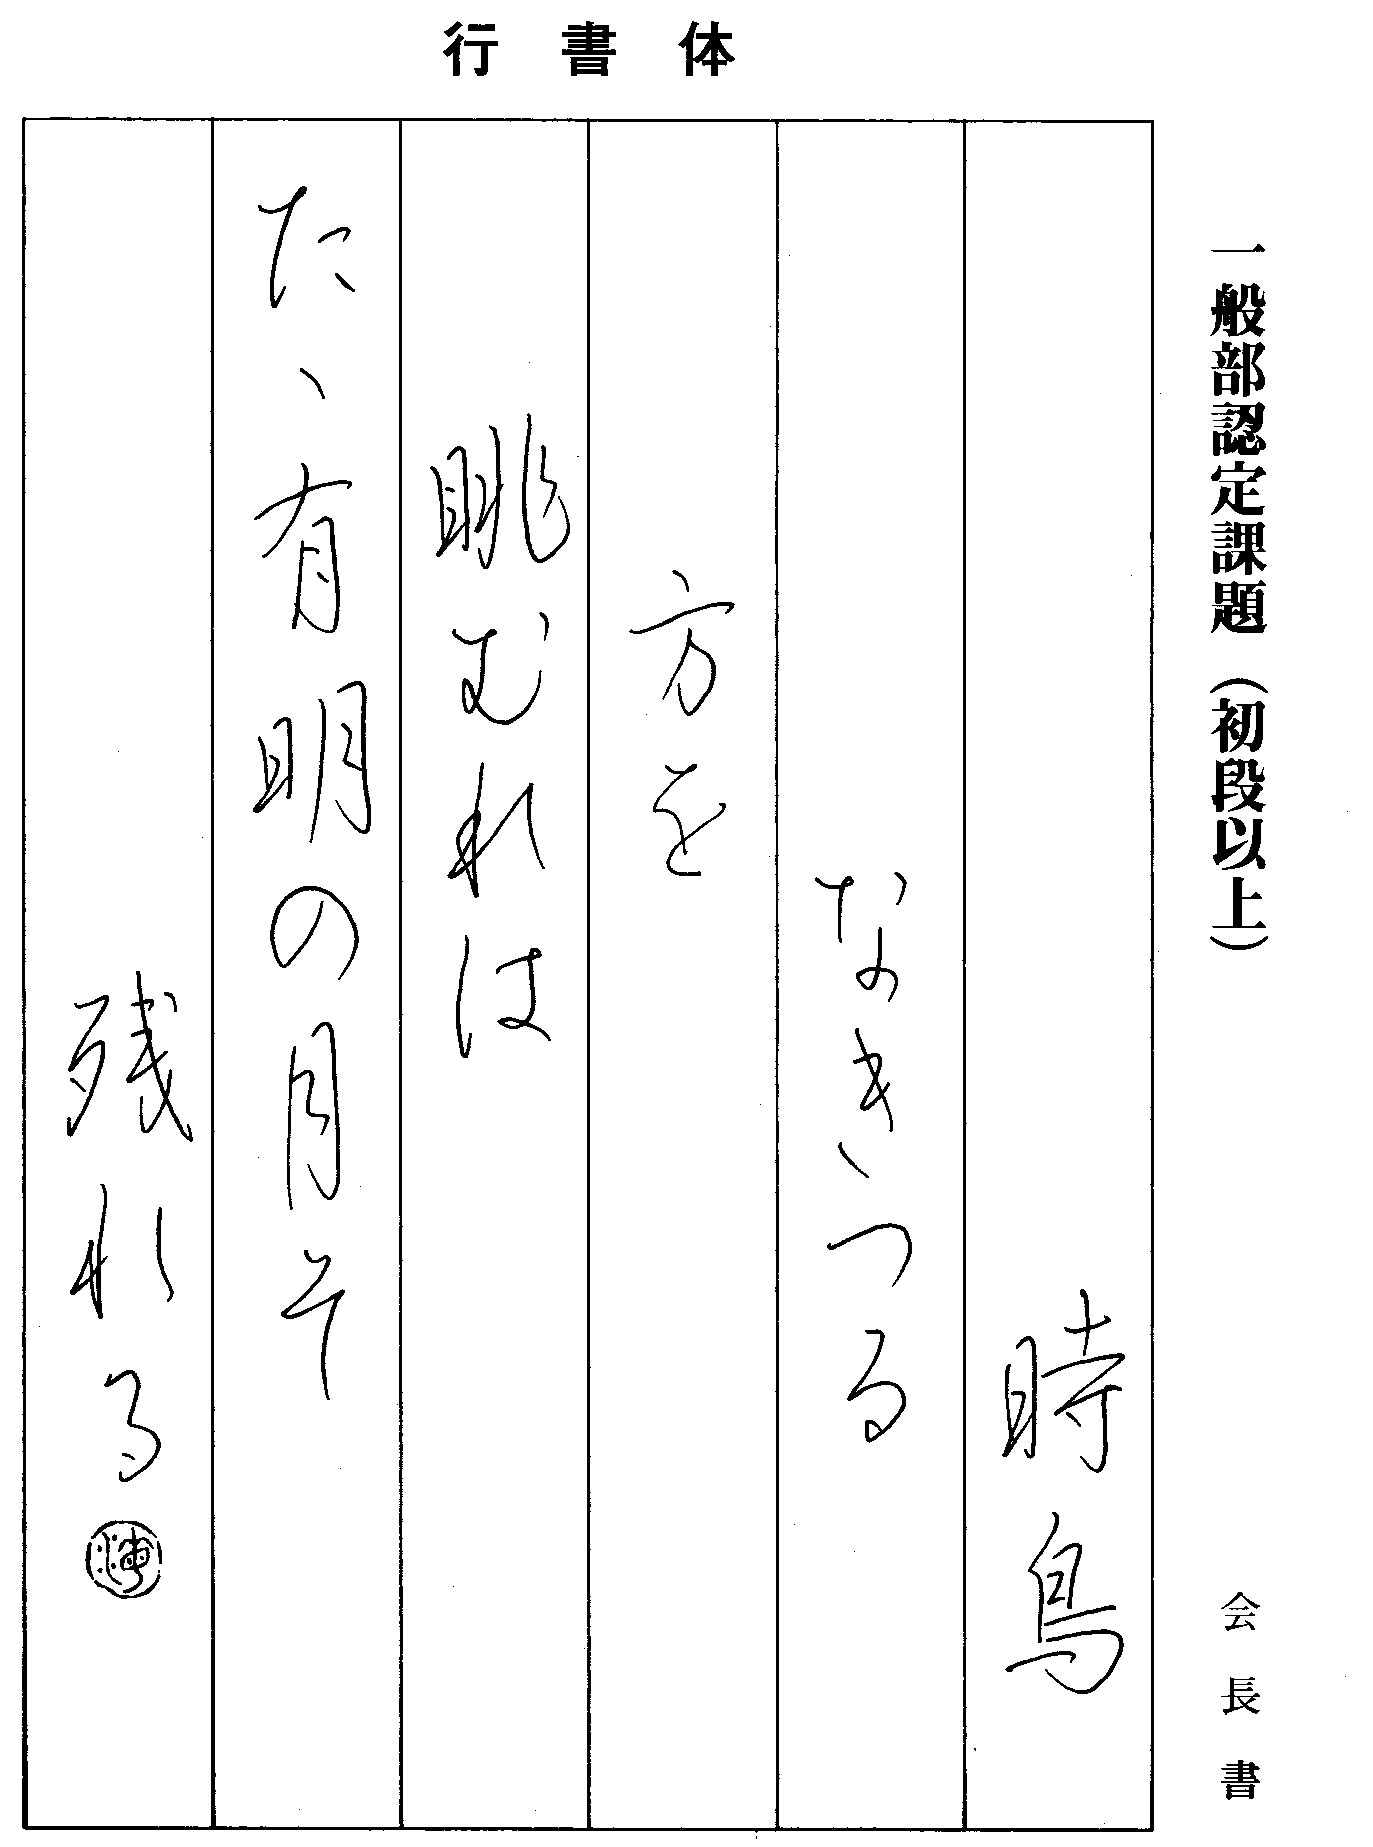 行書体
一般部認定課題（初段以上）
会長書
時鳥
なきつる
方を
眺むれは
たゝ有明の月そ
残れる